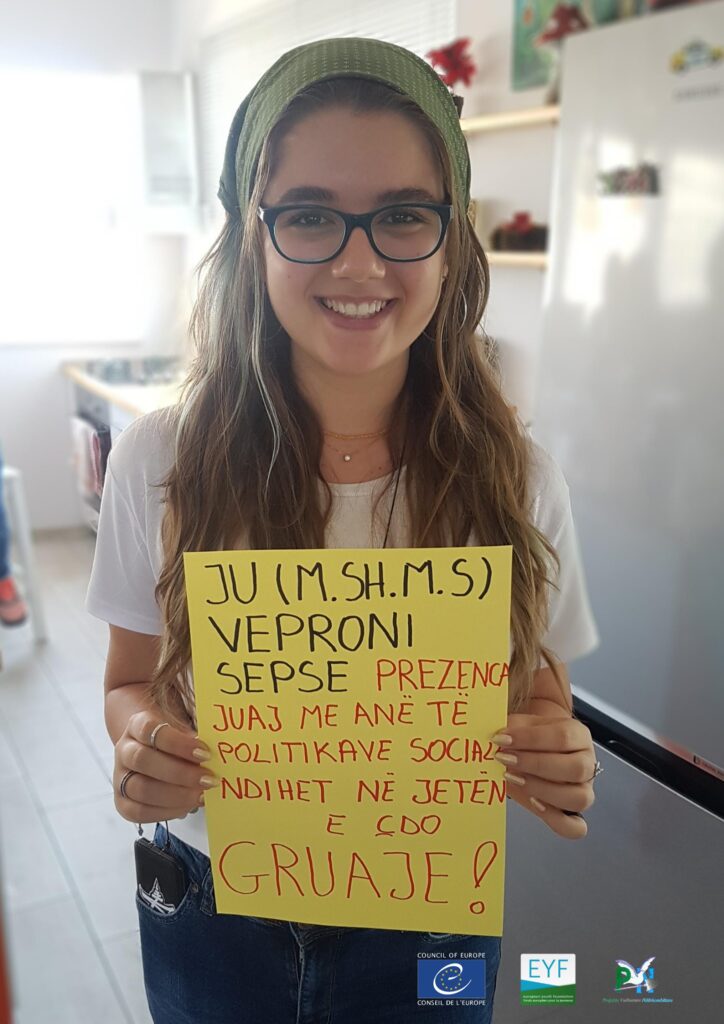 JU (M.SH.M.S)
VEPRONI
SEPSE PREZENCA
JUAJ ME ANË TË
POLITIKAVE SOCIALE
NDIHET NË JETËN
E ÇDO
GRUAJE!
COUNCIL OF EUROPE
CONSEIL DE L'EUROPE
EYF